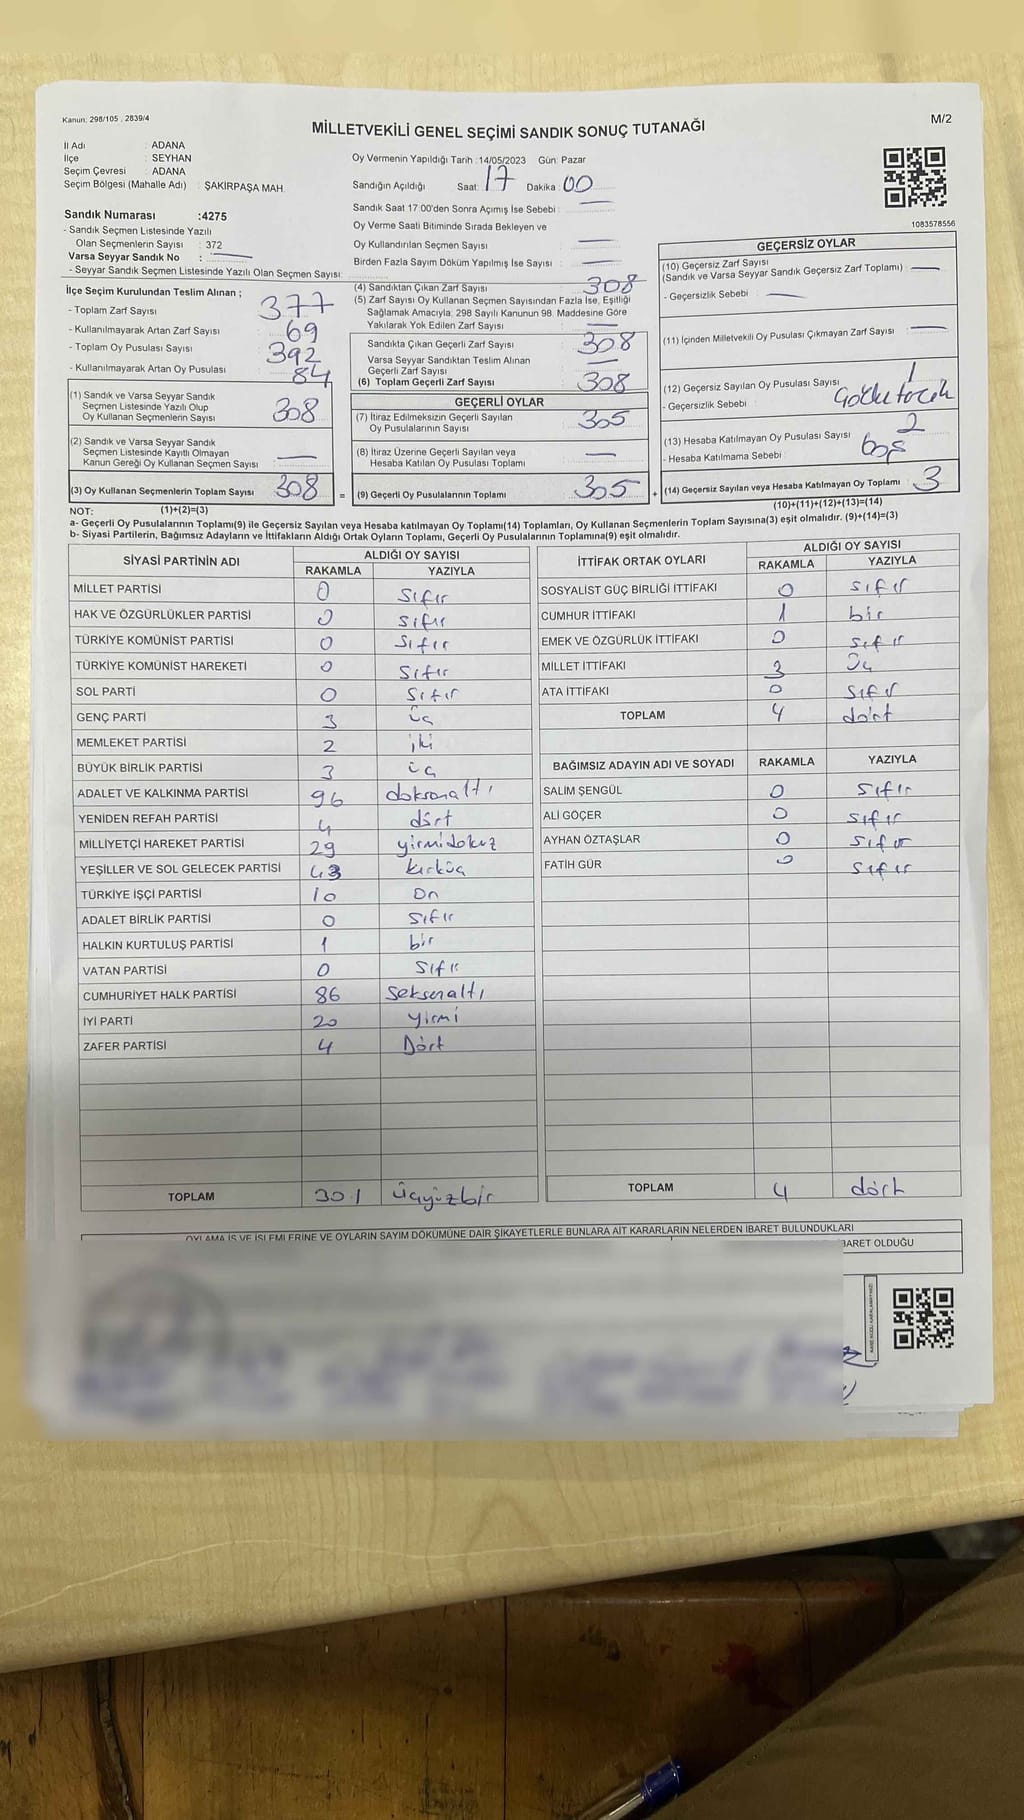 Kanun: 298/105 , 2839/4
M/2
MİLLETVEKİLİ GENEL SEÇİMİ SANDIK SONUÇ TUTANAĞI
İl Adı : ADANA
İlçe : SEYHAN
Seçim Çevresi : ADANA
Seçim Bölgesi (Mahalle Adı) : ŞAKİRPAŞA MAH.
Sandık Numarası :4275
- Sandık Seçmen Listesinde Yazılı
Olan Seçmenlerin Sayısı : 372
Varsa Seyyar Sandık No :
- Seyyar Sandık Seçmen Listesinde Yazılı Olan Seçmen Sayısı:
Oy Vermenin Yapıldığı Tarih :14/05/2023 Gün: Pazar
Sandığın Açıldığı Saat: 17 Dakika : 00
Sandık Saat 17:00'den Sonra Açımış İse Sebebi :
Oy Verme Saati Bitiminde Sırada Bekleyen ve
Oy Kullandırılan Seçmen Sayısı :
Birden Fazla Sayım Döküm Yapılmış İse Sayısı :
1083578556
İlçe Seçim Kurulundan Teslim Alınan ;
- Toplam Zarf Sayısı : 377
- Kullanılmayarak Artan Zarf Sayısı : 69
- Toplam Oy Pusulası Sayısı : 392
- Kullanılmayarak Artan Oy Pusulası : 84
(1) Sandık ve Varsa Seyyar Sandık
Seçmen Listesinde Yazılı Olup
Oy Kullanan Seçmenlerin Sayısı 308
(2) Sandık ve Varsa Seyyar Sandık
Seçmen Listesinde Kayıtlı Olmayan
Kanun Gereği Oy Kullanan Seçmen Sayısı
(3) Oy Kullanan Seçmenlerin Toplam Sayısı 308
(1)+(2)=(3)
(4) Sandıktan Çıkan Zarf Sayısı 308
(5) Zarf Sayısı Oy Kullanan Seçmen Sayısından Fazla İse, Eşitliği
Sağlamak Amacıyla, 298 Sayılı Kanunun 98. Maddesine Göre
Yakılarak Yok Edilen Zarf Sayısı
Sandıkta Çıkan Geçerli Zarf Sayısı 308
Varsa Seyyar Sandıktan Teslim Alınan
Geçerli Zarf Sayısı
(6) Toplam Geçerli Zarf Sayısı 308
GEÇERLİ OYLAR
(7) İtiraz Edilmeksizin Geçerli Sayılan
Oy Pusulalarının Sayısı 305
(8) İtiraz Üzerine Geçerli Sayılan veya
Hesaba Katılan Oy Pusulası Toplamı
= (9) Geçerli Oy Pusulalarının Toplamı 305 +
GEÇERSİZ OYLAR
(10) Geçersiz Zarf Sayısı
(Sandık ve Varsa Seyyar Sandık Geçersiz Zarf Toplamı) :
- Geçersizlik Sebebi :
(11) İçinden Milletvekili Oy Pusulası Çıkmayan Zarf Sayısı :
(12) Geçersiz Sayılan Oy Pusulası Sayısı : 1
- Geçersizlik Sebebi :
(13) Hesaba Katılmayan Oy Pusulası Sayısı : 2
- Hesaba Katılmama Sebebi : boş
(14) Geçersiz Sayılan veya Hesaba Katılmayan Oy Toplamı 3
(10)+(11)+(12)+(13)=(14)
NOT:
a- Geçerli Oy Pusulalarının Toplamı(9) ile Geçersiz Sayılan veya Hesaba katılmayan Oy Toplamı(14) Toplamları, Oy Kullanan Seçmenlerin Toplam Sayısına(3) eşit olmalıdır. (9)+(14)=(3)
b- Siyasi Partilerin, Bağımsız Adayların ve İttifakların Aldığı Ortak Oyların Toplamı, Geçerli Oy Pusulalarının Toplamına(9) eşit olmalıdır.
SİYASİ PARTİNİN ADI ALDIĞI OY SAYISI
RAKAMLA YAZIYLA
MİLLET PARTİSİ 0 Sıfır
HAK VE ÖZGÜRLÜKLER PARTİSİ 0 Sıfır
TÜRKİYE KOMÜNİST PARTİSİ 0 Sıfır
TÜRKİYE KOMÜNİST HAREKETİ 0 Sıfır
SOL PARTİ 0 Sıfır
GENÇ PARTİ 3 üç
MEMLEKET PARTİSİ 2 iki
BÜYÜK BİRLİK PARTİSİ 3 üç
ADALET VE KALKINMA PARTİSİ 96 doksanaltı
YENİDEN REFAH PARTİSİ 4 dört
MİLLİYETÇİ HAREKET PARTİSİ 29 yirmidokuz
YEŞİLLER VE SOL GELECEK PARTİSİ 43 kırküç
TÜRKİYE İŞÇİ PARTİSİ 10 On
ADALET BİRLİK PARTİSİ 0 Sıfır
HALKIN KURTULUŞ PARTİSİ 1 bir
VATAN PARTİSİ 0 Sıfır
CUMHURİYET HALK PARTİSİ 86 Seksenaltı
İYİ PARTİ 20 Yirmi
ZAFER PARTİSİ 4 Dört
TOPLAM 301 Üçyüzbir
İTTİFAK ORTAK OYLARI ALDIĞI OY SAYISI
RAKAMLA YAZIYLA
SOSYALİST GÜÇ BİRLİĞİ İTTİFAKI 0 Sıfır
CUMHUR İTTİFAKI 1 bir
EMEK VE ÖZGÜRLÜK İTTİFAKI 0 Sıfır
MİLLET İTTİFAKI 3 Üç
ATA İTTİFAKI 0 Sıfır
TOPLAM 4 dört
BAĞIMSIZ ADAYIN ADI VE SOYADI RAKAMLA YAZIYLA
SALİM ŞENGÜL 0 Sıfır
ALİ GÖÇER 0 Sıfır
AYHAN ÖZTAŞLAR 0 Sıfır
FATİH GÜR 0 Sıfır
TOPLAM 4 dört
OYLAMA İŞ VE İŞLEMLERİNE VE OYLARIN SAYIM DÖKÜMÜNE DAİR ŞİKAYETLERLE BUNLARA AİT KARARLARIN NELERDEN İBARET BULUNDUKLARI
BARET OLDUĞU